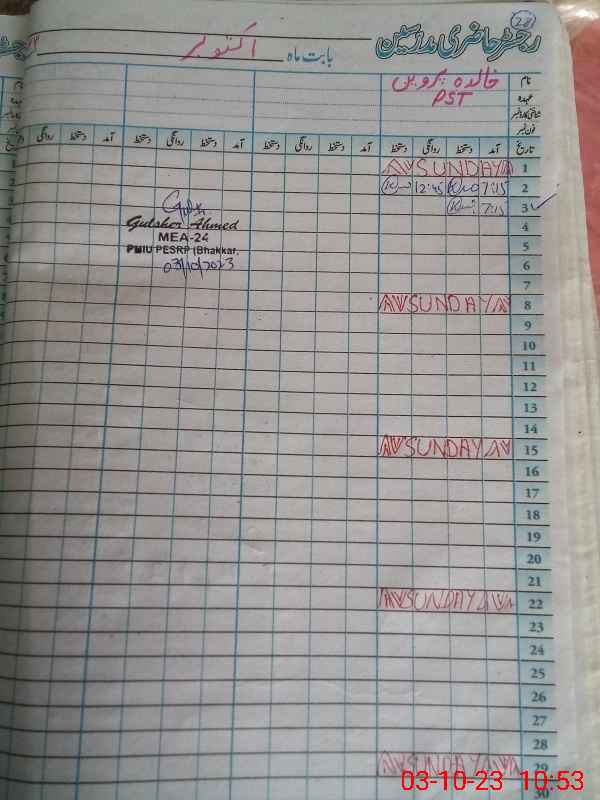 28
رجسٹر حاضری مدرسین
بابت ماہ اکتوبر
نام خالدہ پروین
عہدہ PST
شناختی کارڈ نمبر
فون نمبر
تاریخ آمد دستخط روانگی دستخط آمد دستخط روانگی دستخط آمد دستخط روانگی دستخط آمد دستخط روانگی
1 SUNDAY
2 7:15 12:45
3 7:15
4
5
6
7
8 SUNDAY
9
10
11
12
13
14
15 SUNDAY
16
17
18
19
20
21
22 SUNDAY
23
24
25
26
27
28
29 SUNDAY
30
Gulsher Ahmed
MEA-24
PMIU PESRP (Bhakkar)
03/10/2023
03-10-23 10:53